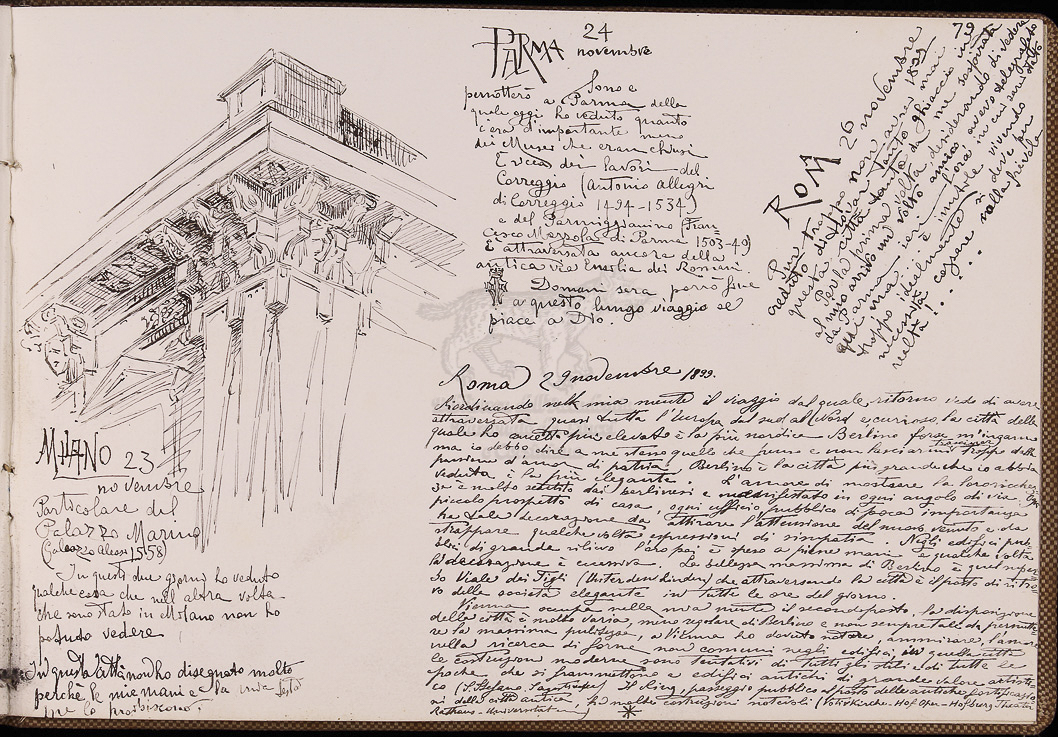 79
MILANO 23
novembre
Particolare del
Palazzo Marino
(Galeazzo Alessi 1558)
In questi due giorni ho veduto
qualche cosa che nell'altra volta
che sono stato in Milano non ho
potuto vedere
In questa città non ho disegnato molto
perchè le mie mani e la mia testa
me lo proibiscono.
PARMA 24
novembre
Sono e
pernotterò a Parma della
quale oggi ho veduto quanto
c'era d'importante meno
dei Musei che eran chiusi
E ricca dei lavori del
Correggio (Antonio Allegri
di Correggio 1494-1534)
e del Parmigianino (Fran=
cesco Mazzola di Parma 1503-40)
È attraversata ancora della
antica via Emelia dei Romani.
Domani sera porrò fine
a questo lungo viaggio se
piace a Dio.
ROMA 26 novembre
1899
Pur troppo non avrei mai
veduto di
questa città tanto di ghiaccio in
al mio arrivo un volto amico desiderando di vedere
da Parma ieri avevo telegrafato
qui ma è inutile
troppo idealmente vivendo
necessità cozzare nella
realtà!....
Roma 29 novembre 1899.
Riordinando nella mia mente il viaggio dal quale ritorno vedo di avere
attraversata quasi tutta l'Europa dal sud al Nord e, curioso, la città della
quale ho più elevato è la più nordica Berlino forse m'inganno
ma debbo dire a me stesso quello che penso e non lasciarmi troppo dalla
passione d'amor di patria. Berlino è la città più grande che io abbia
veduta è la più elegante. L'amore di mostrare la loro ricchez
za è molto sentito dai berlinesi e manifestato in ogni angolo di via. Ogni
piccolo prospetto di casa, ogni ufficio pubblico di poca importanza
ha tale decorazione da attirare l'attenzione del nuovo venuto e da
strappare qualche volta espressioni di simpatia. Negli edifici pub
blici di grande rilievo l'oro poi è speso a piene mani e qualche volta
la decorazione è eccessiva. La bellezza massima di Berlino è quel super
bo Viale dei Tigli (Unter den Linden) che attraversando la città è il posto di ritro
vo della società elegante in tutte le ore del giorno.
Vienna occupa nella mia mente il secondo posto, la disposizione
della città è molto varia, meno regolare di Berlino e non sempre tale da permette
re la massima pulitezza, a Vienna ho dovuto notare, ammirare, l'amore
nella ricerca di forme non comuni negli edifici, in quella città
le costruzioni moderne sono tentativi di tutti gli stili e di tutte le
epoche che si frammettono a edifici antichi di grande valore artisti
co (S. Stefano, ). Il Ring, passeggio pubblico al posto delle antiche fortificazio
ni della città antica, ha molte costruzioni notevoli (Votivkirche - Hof Oper - Hofburg Theater
Rathaus - Universität